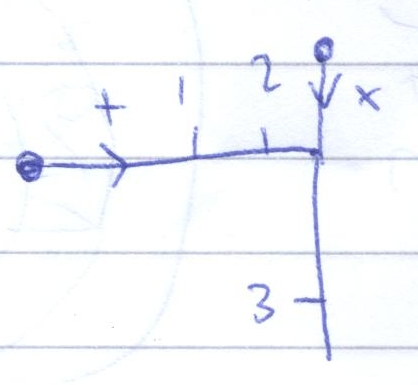 + 1 2 x
3